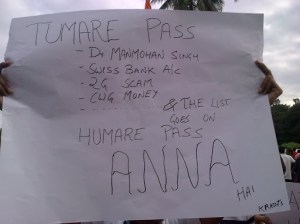 TUMARE PASS
- Dr MANMOHAN SINGH
- SWISS BANK A/c
- 2G SCAM
- CWG MONEY
- & THE LIST
GOES ON
HUMARE PASS
ANNA
HAI